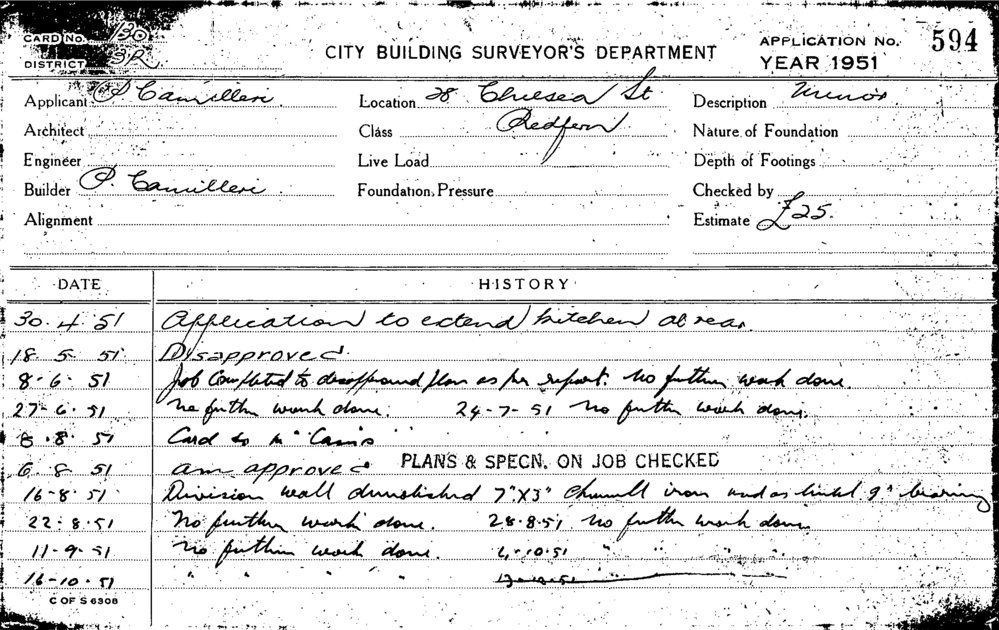 CARD No. 130
DISTRICT 3R
CITY BUILDING SURVEYOR'S DEPARTMENT
APPLICATION No. 594
YEAR 1951
Applicant P Camilleri Location 28 Chelsea St Description Minor
Architect Class Redfern Nature of Foundation
Engineer Live Load Depth of Footings
Builder P. Camilleri Foundation Pressure Checked by
Alignment Estimate £25.
DATE HISTORY
30. 4. 51 Application to extend kitchen at rear
18. 5. 51 Disapproved
8-6. 51 Job Completed to disapproved plan as per report. No further work done
27-6. 51 No further work done. 24-7-51 No further work done.
8. 8. 51 Card to Mr
6. 8. 51 am approved PLANS & SPECN. ON JOB CHECKED
16-8. 51 Division wall demolished 7"X3" channell iron used as lintel 9" bearing
22. 8. 51 No further work done. 28.8.51 No further work done
11-9-51 No further work done. 4-10.51 " " " "
16-10. 51 " " " "
C OF S 6308